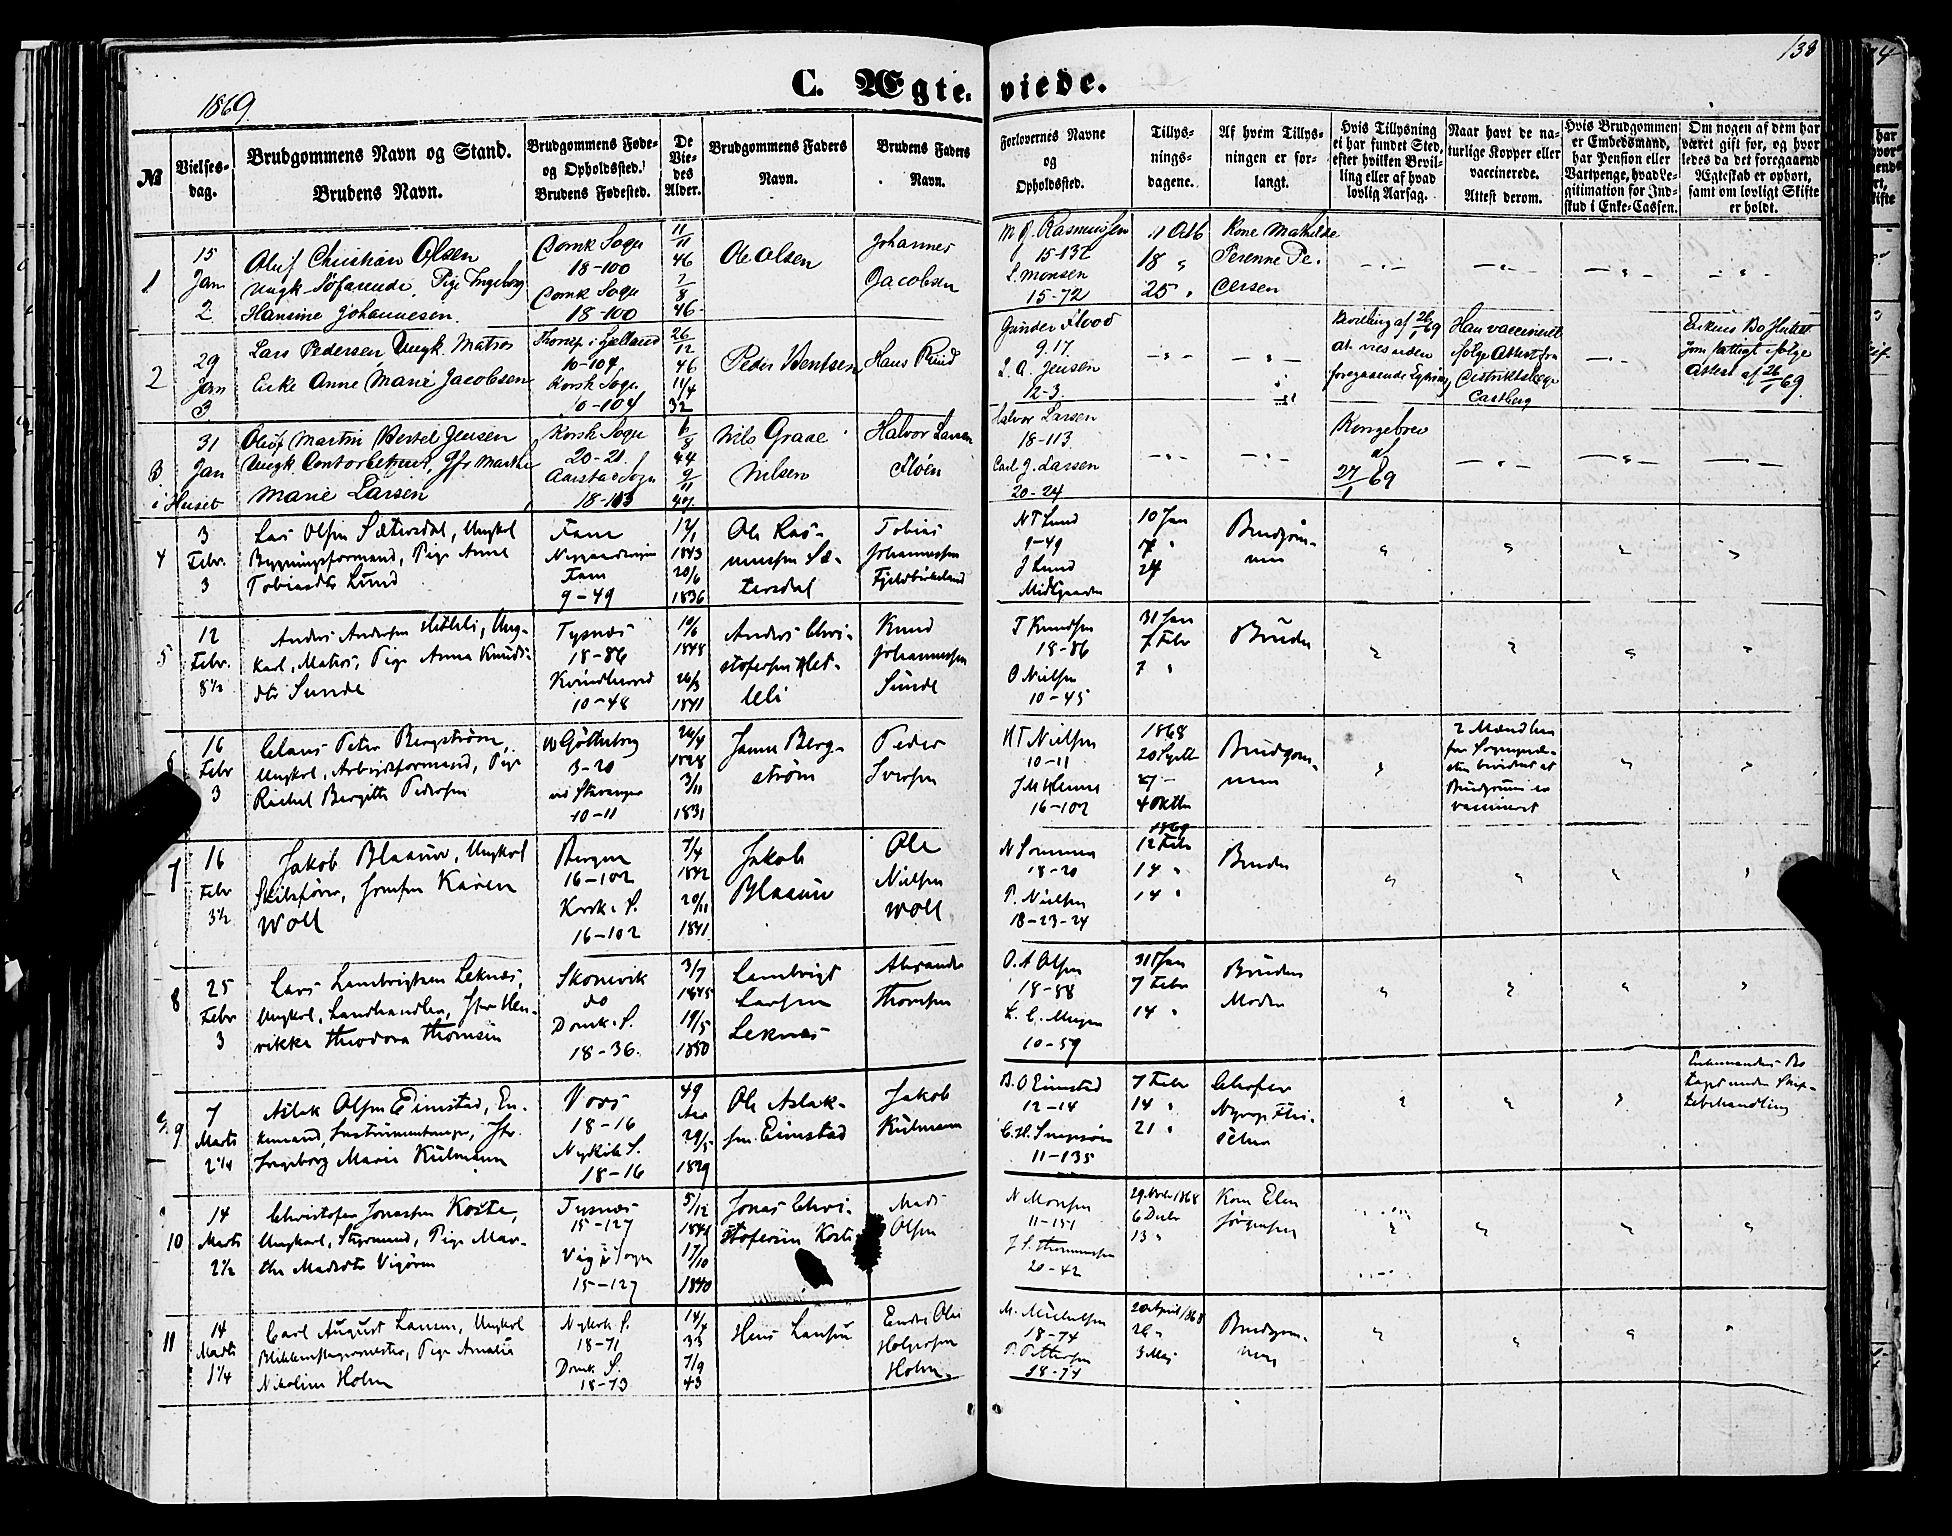 138
C. Ægteviede.
1869
№
Vielsesdag.
Brudgommens Navn og Stand.
Brudens Navn.
BrudgommensFøde-
og Opholdssted.
Brudens Fødested.
De
Vie-
des
Alder.
Brudgommens Faders
Navn.
Brudens Faders
Navn.
Forlovernes Navne
og
Opholdssted.
Tillys-
nings-
dagene.
Af hvem Tillys-
ningen er for-
langt.
Hvis Tillysning
ei har fundet Sted,
efter hvilken Bevil-
ling eller af hvad
lovlig Aarsag.
Naar havt de na-
turlige Kopper eller
vaccinerede.
Attest derom.
Hvis Brudgommen
er Embedsmand,
har Pension eller
Vartpenge, hvad Le-
gitimation for Ind-
skud i Enke-Cassen.
Om nogen af dem har
været gift før, og hvor-
ledes da det foregaaende
Ægteskab er ophørt,
samt om lovligt Skifte
er holdt.
1
15
Jan
2
Oluf Christian Olsen
Ungk. Søfarende, Pige Ingeborg
Hansine Johannesen.
Domk Sogn
18-100
Domk Sogn
18-100
11/11
46
7/8
46
Ole Olsen
Johannes
Jacobsen
15-132
L. Monsen
15-72
18 "
25 "
Kone Mathilde
Perenne Pe-
dersen
2
29
Jan
3
Lars Pedersen Ungk. Matros
Enke Anne Marie Jacobsen
10-104
Korsk Sogn
10-104
26/12
46
11/4
32
Peder Bentsen
Hans Knud
Gunder Flood
9.17.
L. A. Jensen
12-3.
Bevilling af 26/1 69
at vies uden
foregaaende Lysning
Han vaccineret
ifølge Attest fra
Districtslæge
Castberg
Attest af 26/1 69.
3
31
Jan
i Huset
Oluf Martin Bertel Jensen
Ungk Contorbetjent, Jfr Marthe
Marie Larsen
Korsk Sogn
20-21
Aarstad Sogn
18-113
6/8
44
9/11
49.
Nils Graae
Nilsen
Halvor Larsen
Floen
Halvor Larsen
18-113
Carl J. Larsen
20-24
Kongebrev
af
27/1 69
4
3
Febr.
3
Lars Olsen Sætersdal, Ungkel
Bygningsformand, Pige Anne
Tobiasdtr Lund
Fane
Nygaardsveien
Fane
9-49
12/1
1843
20/6
1836
Ole Ras-
mussen Sæ-
tersdal
Tobias
Johannessen
Fjeldbirkeland
N T Lund
9-49
J Lund
Midtgaarden
10 Jan
17 "
24
Brudgom-
men
5
12
Febr.
8½
Karl, Matros, Pige Anna Knuds-
dtr Sunde
Tysnæs
18-86
Kvindherred
10-48
10/6
1848
26/3
1841
Anders Chri-
Knud
Johannessen
Sunde
T Knudsen
18-86
O Nielsen
10-45
31 Jan
7 Febr
7 "
Bruden
16
Febr
3
Claus Peter Bergstrøm,
Ungkel, Arbeidsformand, Pige
Rachel Bergitte Pedersen
v Gøtheborg
3-20
ved Stavanger
10-11
26/4
1828
3/11
1831
Janne Berg-
strøm
Peder
Iversen
N T Nielsen
10-11
16-102
1868
20 Septb
27 -
4 Oktbr
Brudgom-
men
2 Mænd har
Brudgommen er
vaccineret
7
16
Febr
3½
Jakob Blaauw, Ungkel
Skibsfører, Jomfru Karen
Woll
Bergen
16-102
Korsk. S.
16-102
7/4
1842
20/11
1841
Jakob
Blaauw
Ole
Nielsen
Woll
18-20
P. Nielsen
18-23-24
1869
12 Febr
14 "
14 "
Bruden
8
25
Febr
3
Lars Lambrigtsen Leknæs,
Ungkel, Landhandler, Jfr Hen-
rikke Theodora Thomsen
Skonevik
do
Domk. S.
18-36.
3/7
1845
19/5
1850
Lambrigt
Larsen
Leknæs
Alexander
Thomsen
O. A Olsen
18-88
L. C. Meyer
10-59
31 Jan
7 Febr
14 "
Brudens
Moder
9
7
Marts
2¼
Aslak Olsen Eimstad, En-
kemand, Instrumentmager, Jfr.
Ingeborg Marie Kulmann
Voss
18-16
Nykirk S.
18-16
49
Aar
29/5
1829
Ole Aslak-
sen Eimstad
Jakob
Kulmann
B. O Eimstad
12-14
11-135
7 Febr
14 "
21 "
Enkemandens Bo
taget under Skif-
tebehandling
10
14
Marts
2½
Christofer Jonassen Koste,
Ungkarl, Styrmand, Pige Mar-
the Madsdtr Vigøren
Tysnæs
15-127
Vigø Sogn
15-127
5/12
1841
17/10
1840
Jonas Chri-
stofersen Koste
Mads
Olsen
N Monsen
11-151
J. S. Thommesen
20-42
29 Novbr 1868
6 Decbr
13 "
Kone Elen
Jørgensen
11
14
Marts
1¼
Carl August Lansen, Ungkel
Blikkenslagermester, Pige Amalie
Nikoline Holm
Nykirk S.
18-71
Domk. S.
18-73
14/4
33
7/9
43
Hans Lansen
Endre Olai
Holgersen
Holm.
M. Michelsen
18-74
P. Pettersen
18-74
20 April 1868
26 "
3 Mai
Brudgom-
men